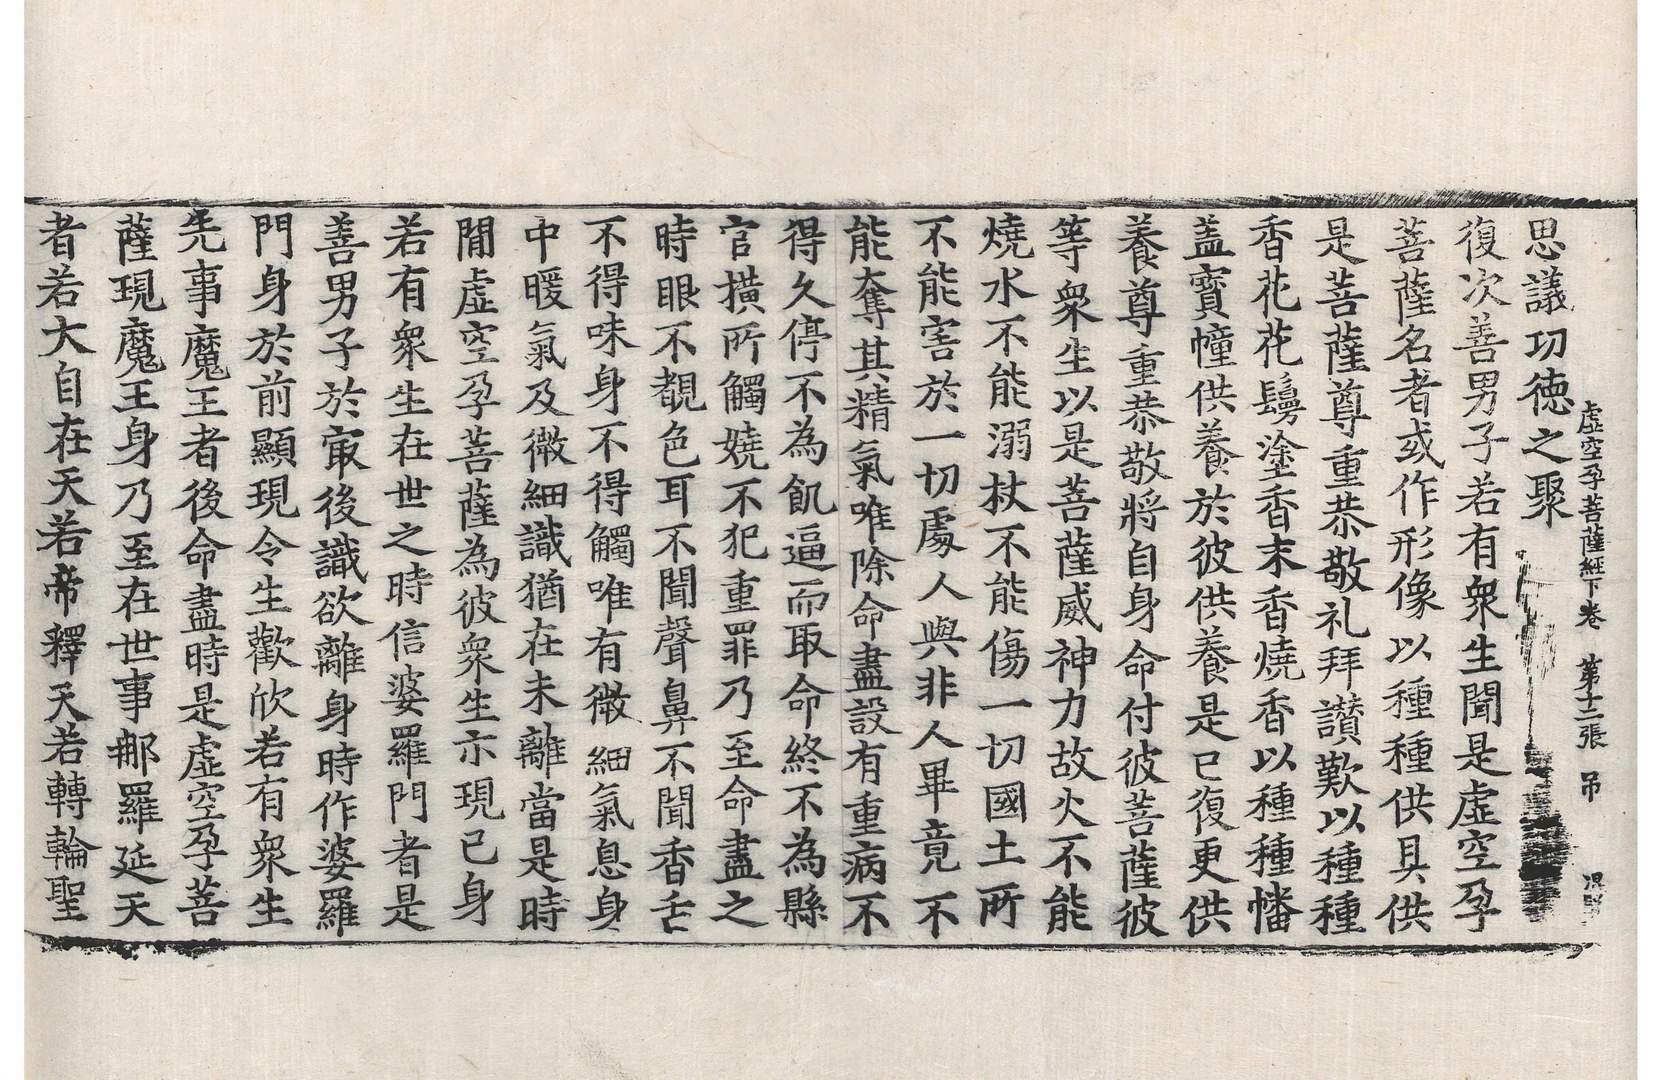 虛空孕菩薩經下卷 第十二張 弔
思議功德之聚
復次善男子若有衆生聞是虛空孕
菩薩名者或作形像以種種供具供
是菩薩尊重恭敬礼拜讃歎以種種
香花花鬘塗香末香燒香以種種幡
盖寶幢供養於彼供養是已復更供
養尊重恭敬將自身命付彼菩薩彼
等衆生以是菩薩威神力故火不能
燒水不能溺杖不能傷一切國土所
不能害於一切處人與非人畢竟不
能奪其精氣唯除命盡設有重病不
得久停不為飢逼而取命終不為縣
官撗所觸嬈不犯重罪乃至命盡之
時眼不覩色耳不聞聲鼻不聞香舌
不得味身不得觸唯有微細氣息身
中暖氣及微細識猶在未離當是時
閒虛空孕菩薩為彼衆生示現已身
若有衆生在世之時信婆羅門者是
善男子於㝡後識欲離身時作婆羅
門身於前顯現令生歡欣若有衆生
先事魔王者後命盡時是虛空孕菩
薩現魔王身乃至在世事那羅延天
者若大自在天若帝釋天若轉輪聖